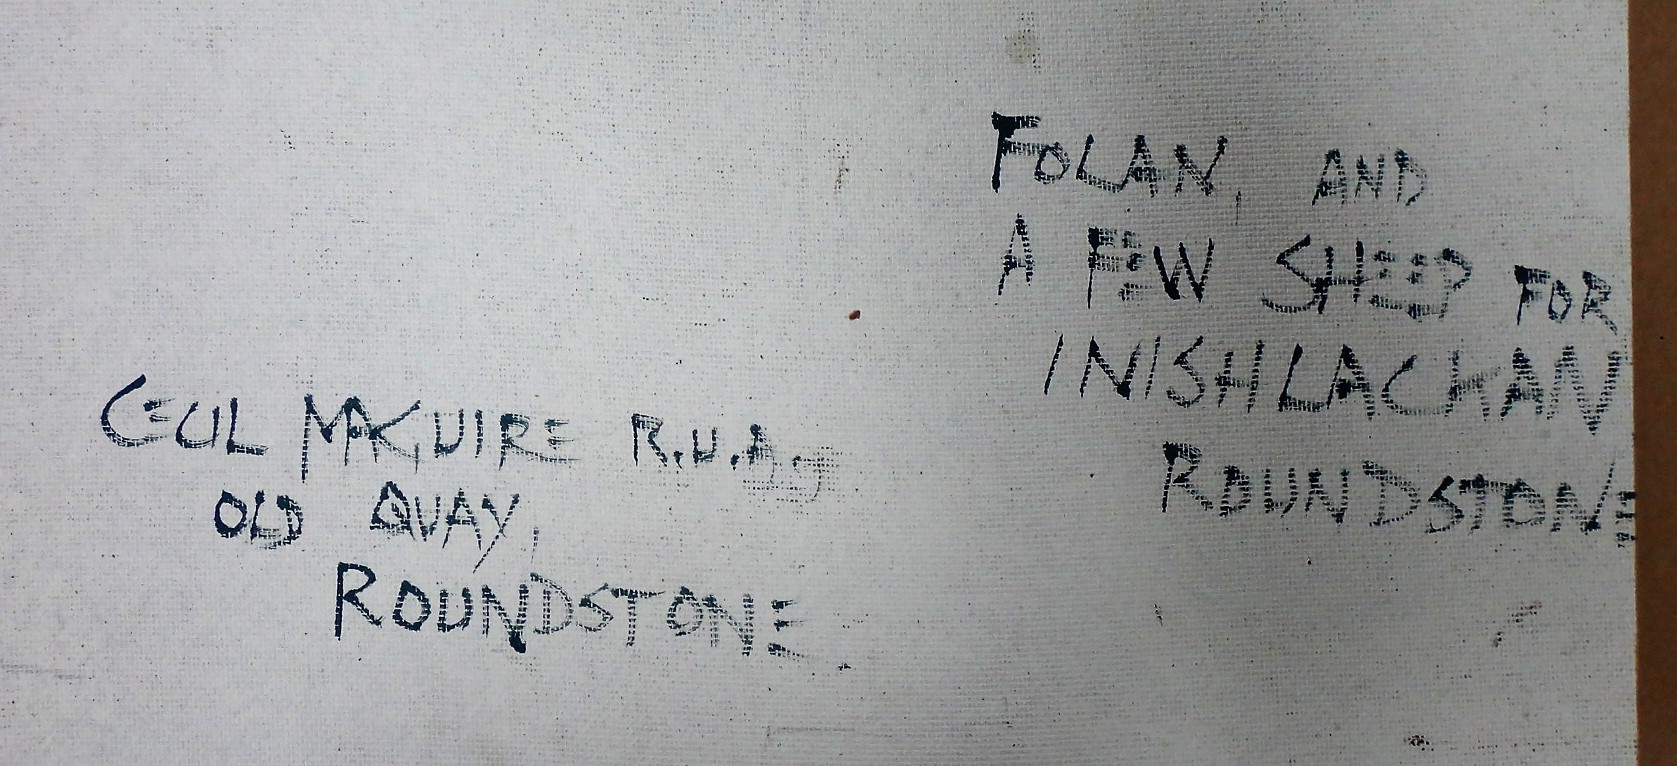 FOLAN, AND
A FEW SHEEP FOR
INISHLACKAN
ROUNDSTONE
CECIL MAGUIRE R.U.A.,
OLD QUAY,
ROUNDSTONE